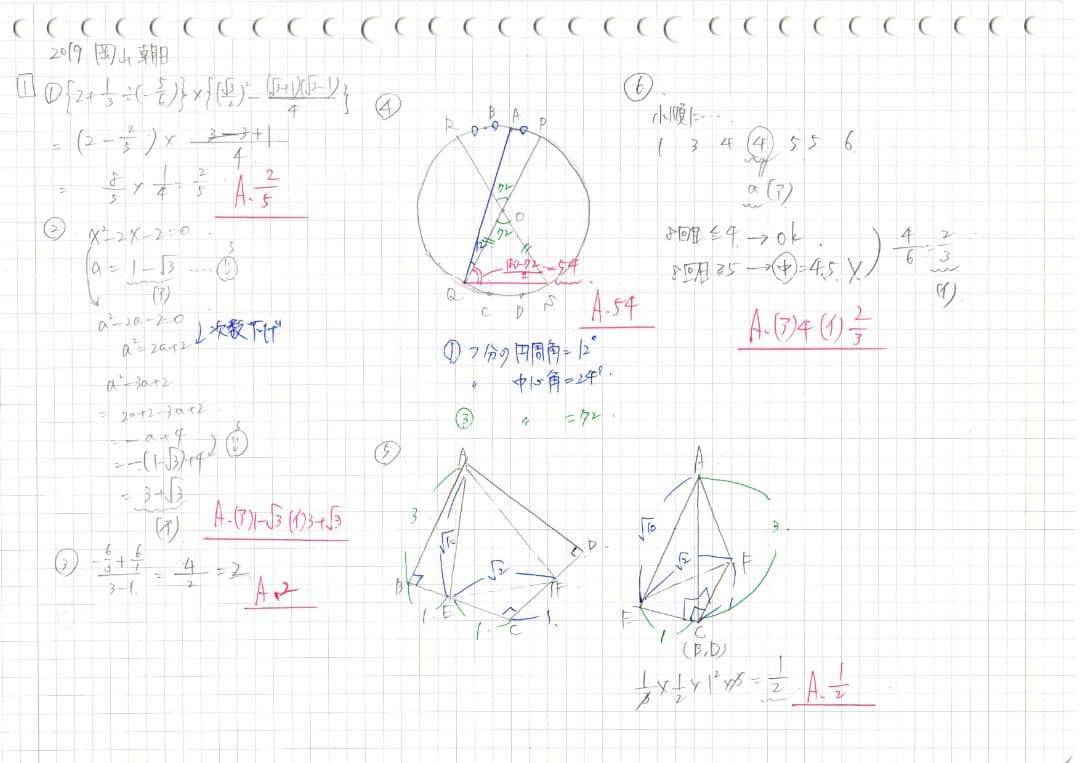 2019 岡山朝日
1
① {2+1/3÷(-5/6)}×{(√3/2)²-(√3+1)(√3-1)/4}
= (2-2/5)×(3-3+1)/4
= 8/5×1/4=2/5
A. 2/5
② x²-2x-2=0
a=1-√3
(ア)
a²-2a-2=0
a²=2a+2
次数下げ
a²-3a+2
=2a+2-3a+2
=-a+4
=-(1-√3)+4
=3+√3
(イ)
A.(ア)1-√3 (イ)3+√3
③ (-6/3+6/1)/(3-1)=4/2=2
A. 2
④
R B A P
72
O
72
12
(180-72)/2=54
Q C D S
A. 54
① 1つ分の円周角=12°
〃 中心角=24°
③ 〃 =72
⑤
A
3
√10
√2
B E C F D
1 1 1
A
√10
3
√2
F
E
1
1
C
(B,D)
1/3×1/2×1²×3=1/2
A. 1/2
⑥
小順に…
1 3 4 4 5 5 6
a (ア)
8回目≦4 → ok
8回目≧5 → 中=4.5
4/6=2/3
(イ)
A.(ア)4 (イ)2/3